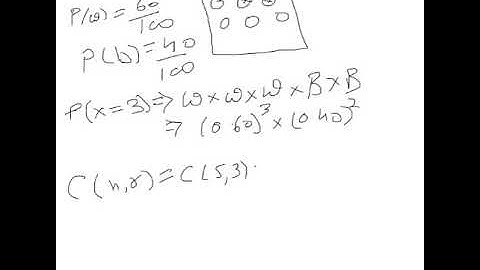 P(ω) = 60/100
P(b) = 40/100
P(x=3) ⇒ W × W × W × B × B
⇒ (0.60)³ × (0.40)²
C(n,r) = C(5,3).